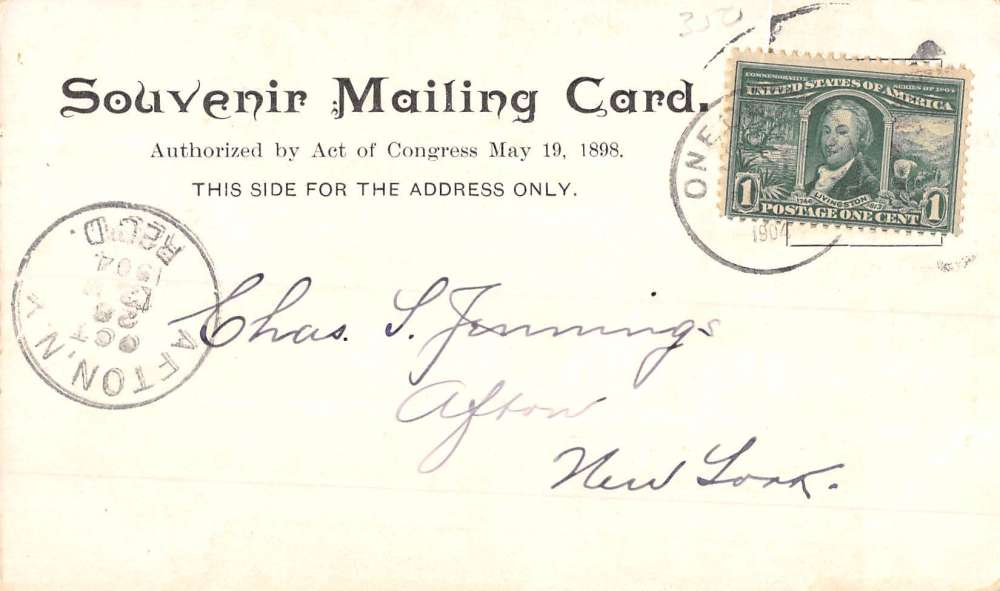 Souvenir Mailing Card.
Authorized by Act of Congress May 19, 1898.
THIS SIDE FOR THE ADDRESS ONLY.
COMMEMORATIVE SERIES OF 1904
UNITED STATES OF AMERICA
LIVINGSTON
1 POSTAGE ONE CENT 1
ONE
1904
AFTON, N.Y.
OCT
1904
REC'D.
Chas. S. Jennings
Afton
New York.